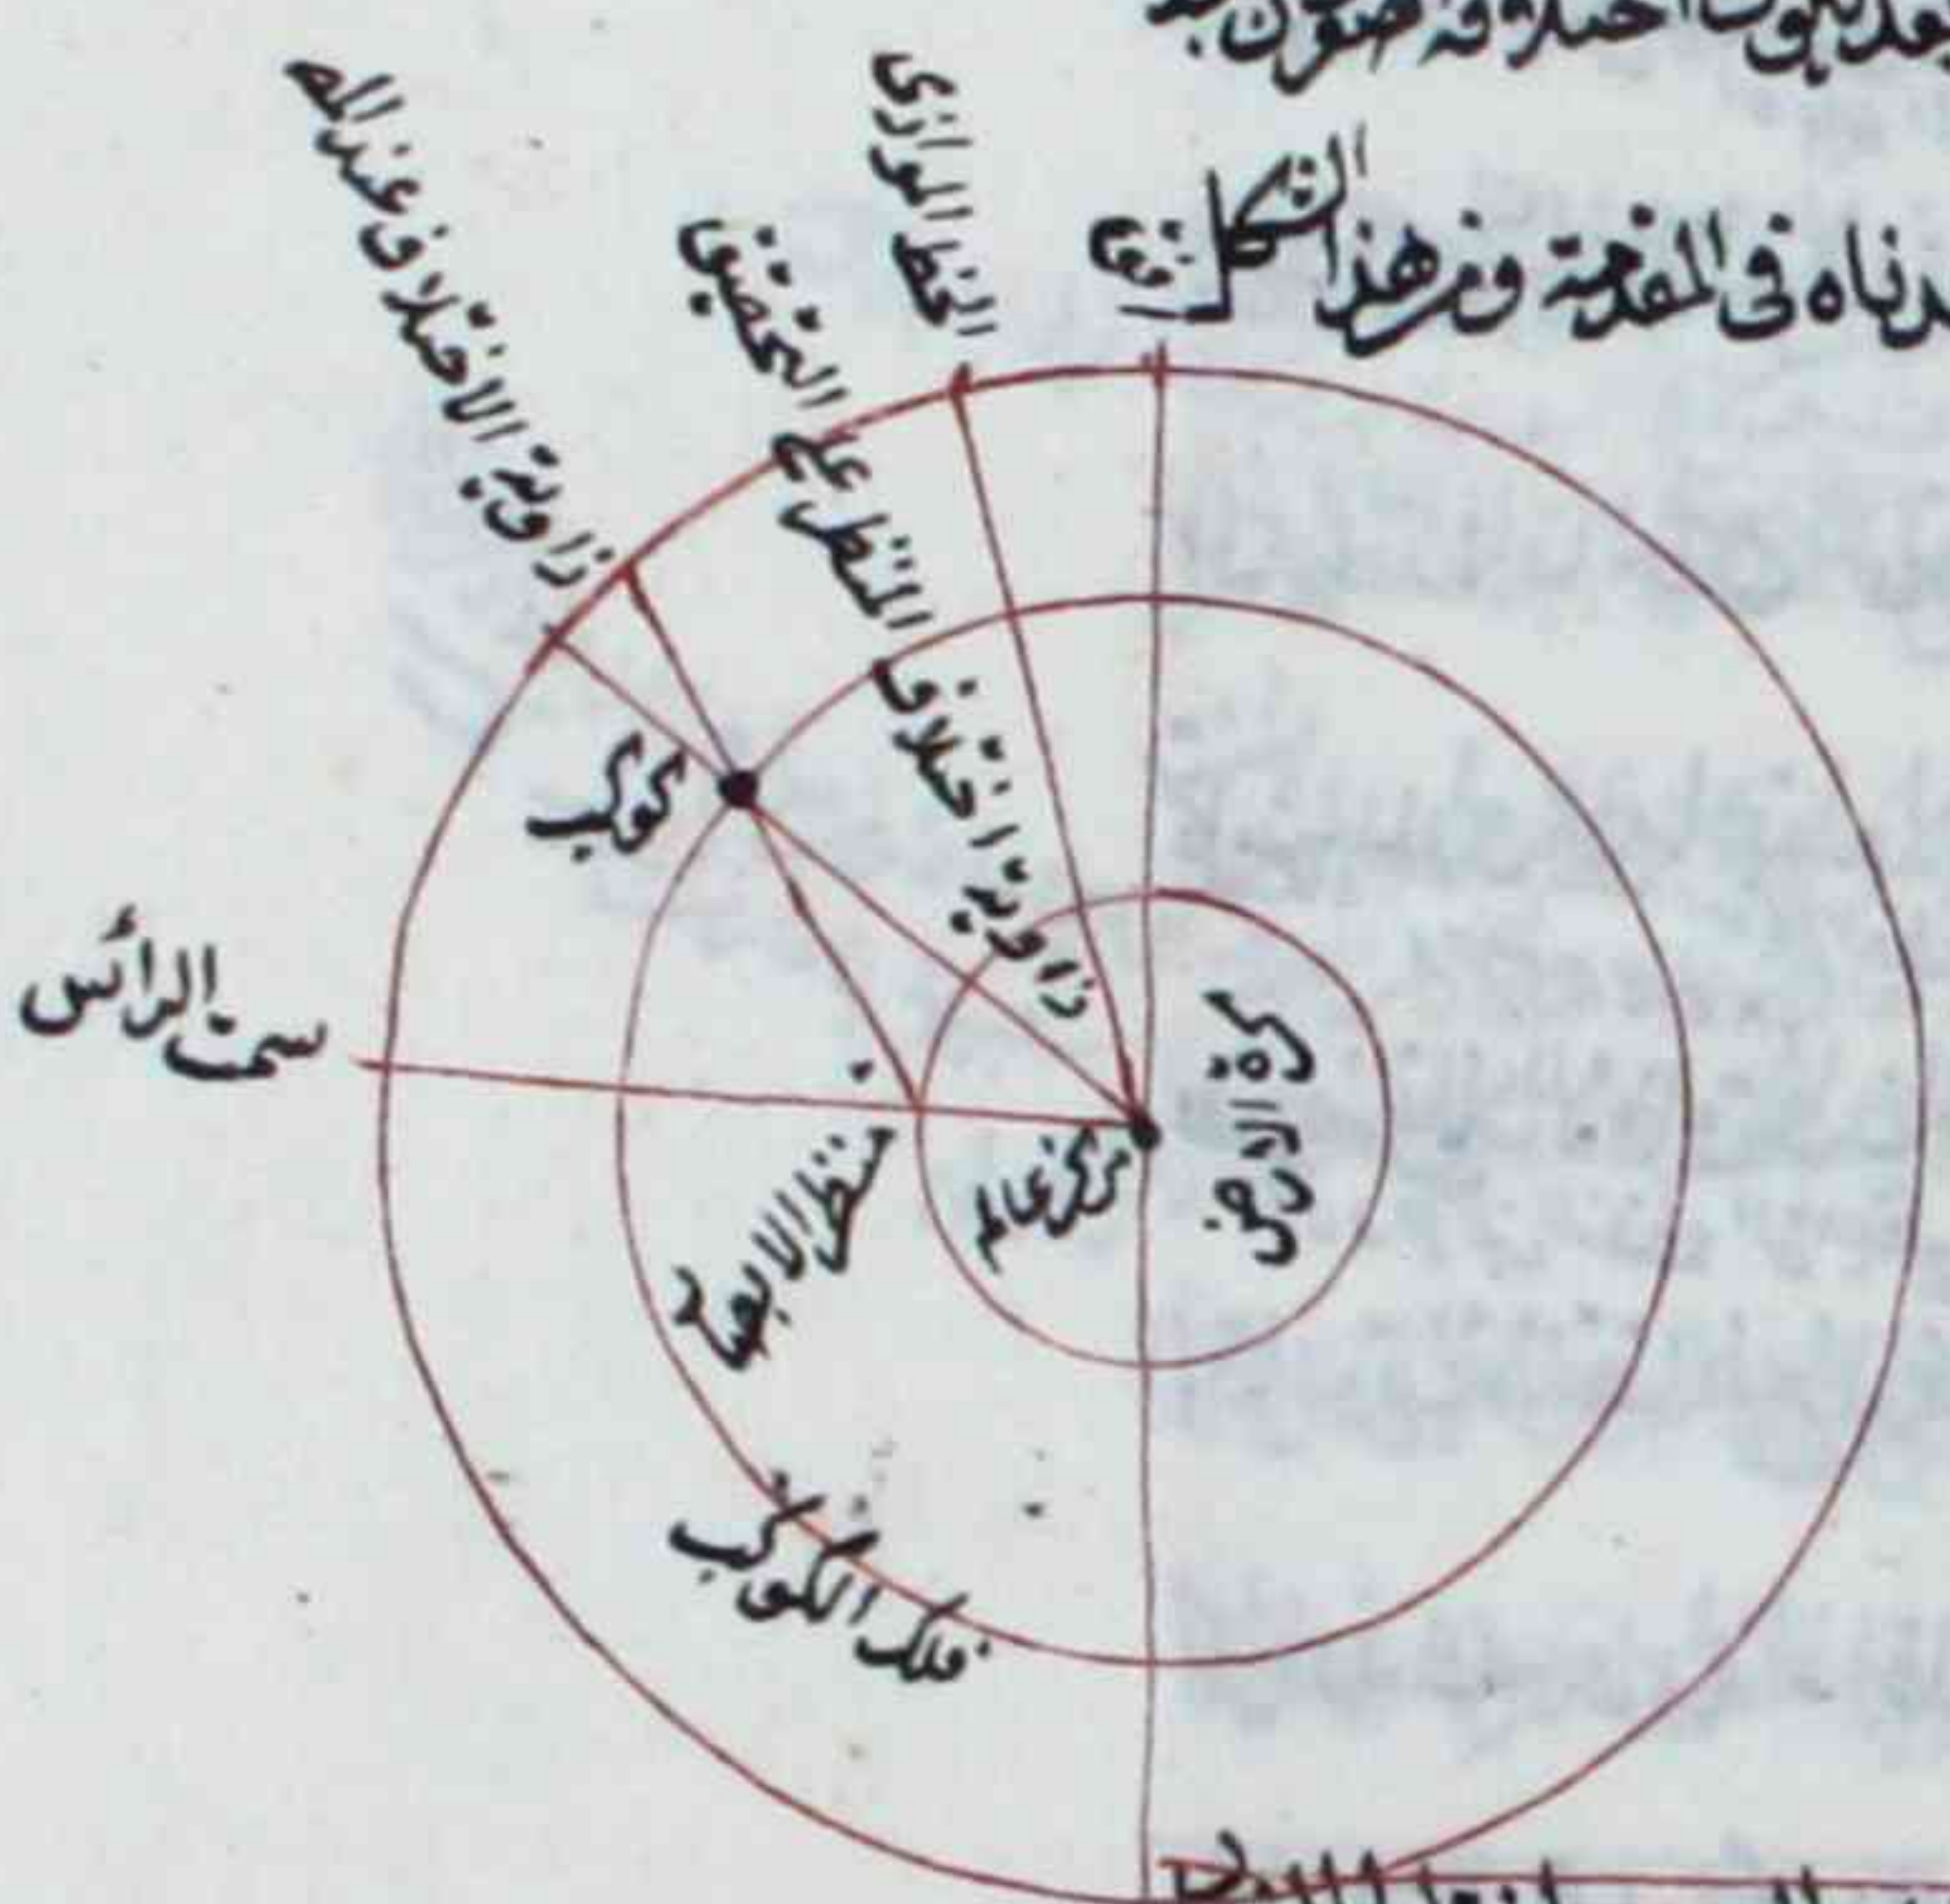 دناه فى المقدمة ومن هذا الشكل
افق
الخط الموازى
زاوية اختلاف المنظر على التحقيق
زاوية الاختلاف عند
كوكب
سمت الرأس
منظر الابصار
مركز عالم
كرة الارض
فلك الكوكب